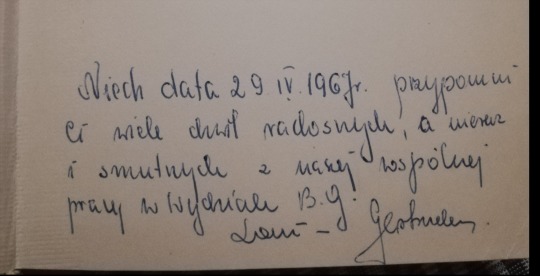 Niech data 29 IV. 1967r. przypomni
Ci wiele chwil radosnych, a nieraz
i smutnych z naszej wspólnej
pracy w Wydziale B.G.